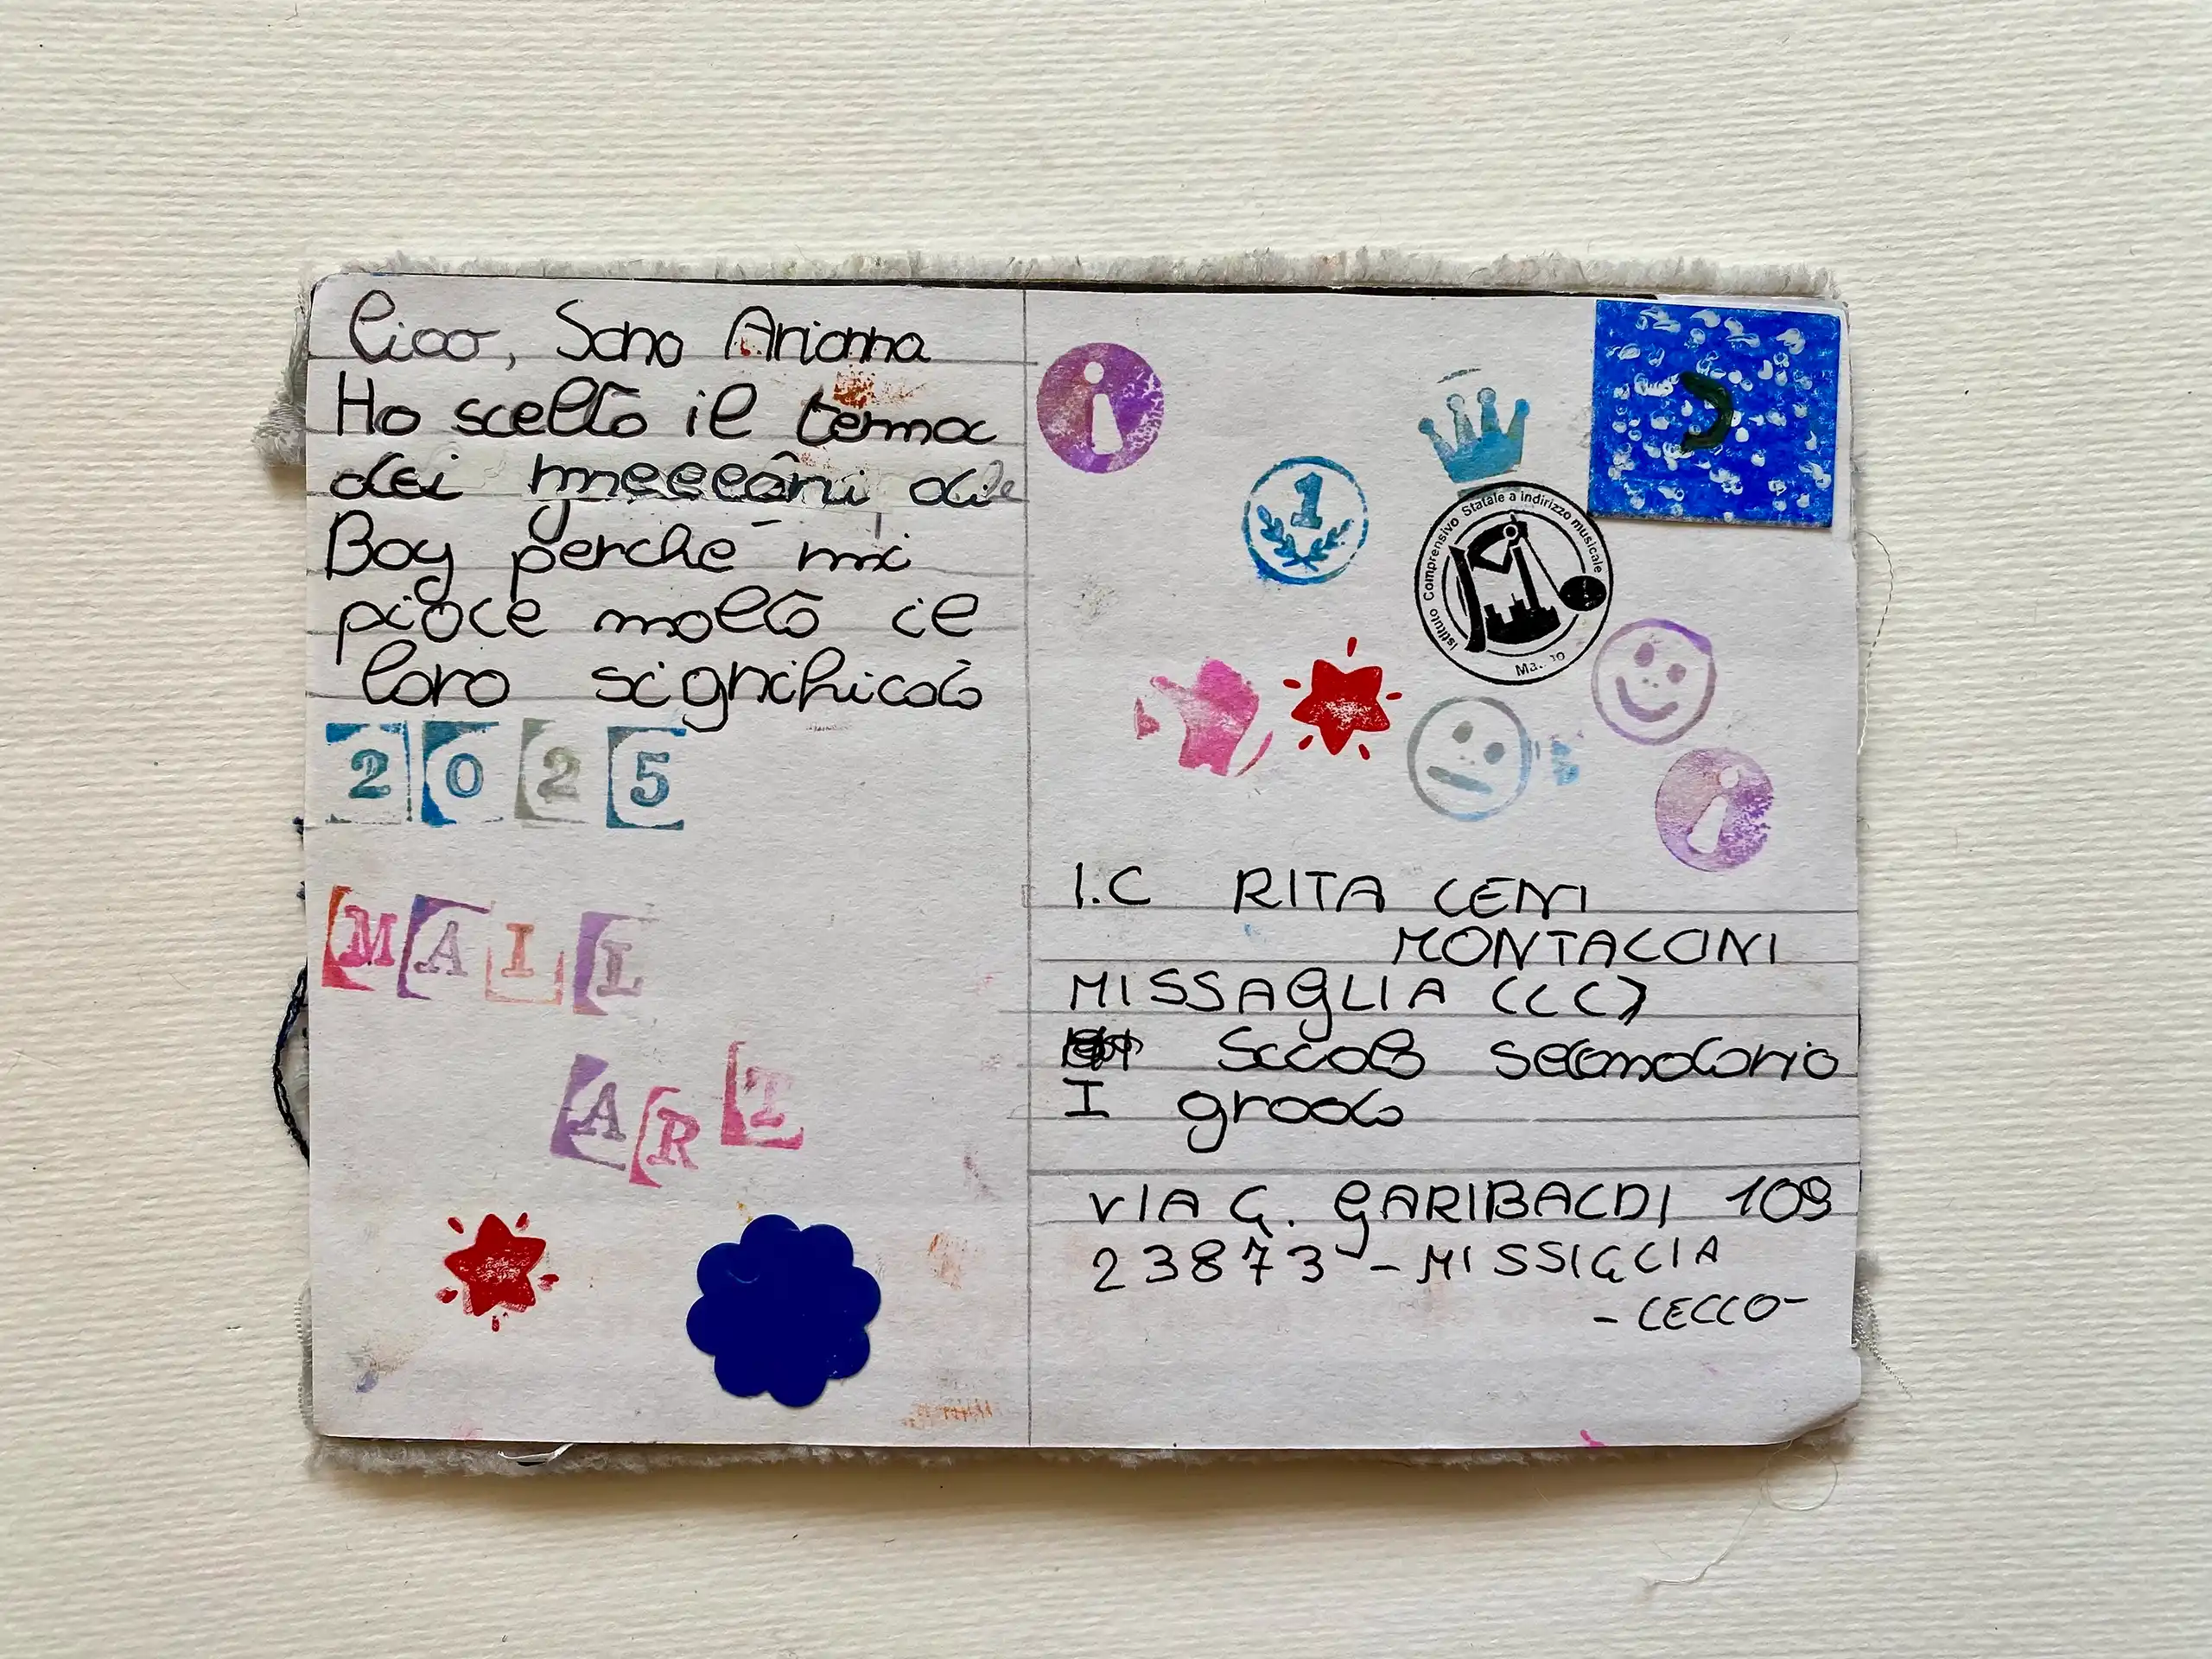 Ciao, Sono Arianna
Ho scelto il tema
dei
Boy perché mi
piace molto il
loro significato
2025
MAIL
ART
1
Istituto Comprensivo Statale a indirizzo musicale
I.C RITA LEVI
MONTALCINI
MISSAGLIA (LC)
Scuola secondaria
I grado
VIA G. GARIBALDI 109
23873 - MISSIGLIA
- LECCO -